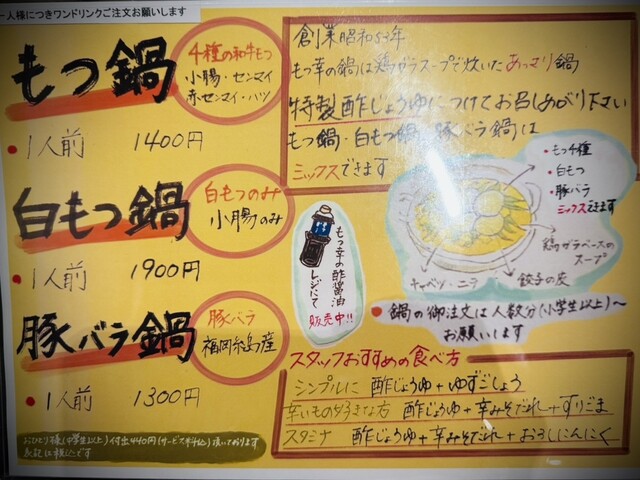 一人様につきワンドリンクご注文お願いします
もつ鍋
4種の和牛もつ
小腸・センマイ
赤センマイ・ハツ
1人前 1400円
白もつ鍋
白もつのみ
小腸のみ
1人前 1900円
豚バラ鍋
豚バラ
福岡糸島産
1人前 1300円
おひとり様(中学生以上)付出440円(サービス料込)頂いております
表記は税込です
創業昭和53年
もつ幸の鍋は鶏ガラスープで炊いたあっさり鍋
特製酢じょうゆにつけてお召しあがり下さい
もつ鍋・白もつ鍋・豚バラ鍋は
ミックスできます
もつ4種
白もつ
豚バラ
ミックスできます
鶏ガラベースの
スープ
キャベツ・ニラ
餃子の皮
もつ幸の酢醤油
レジにて
販売中!!
鍋の御注文は人数分(小学生以上)〜
お願いします
スタッフおすすめの食べ方
シンプルに 酢じょうゆ+ゆずごしょう
辛いもの好きな方 酢じょうゆ+辛みそだれ+すりごま
スタミナ 酢じょうゆ+辛みそだれ+おろしにんにく